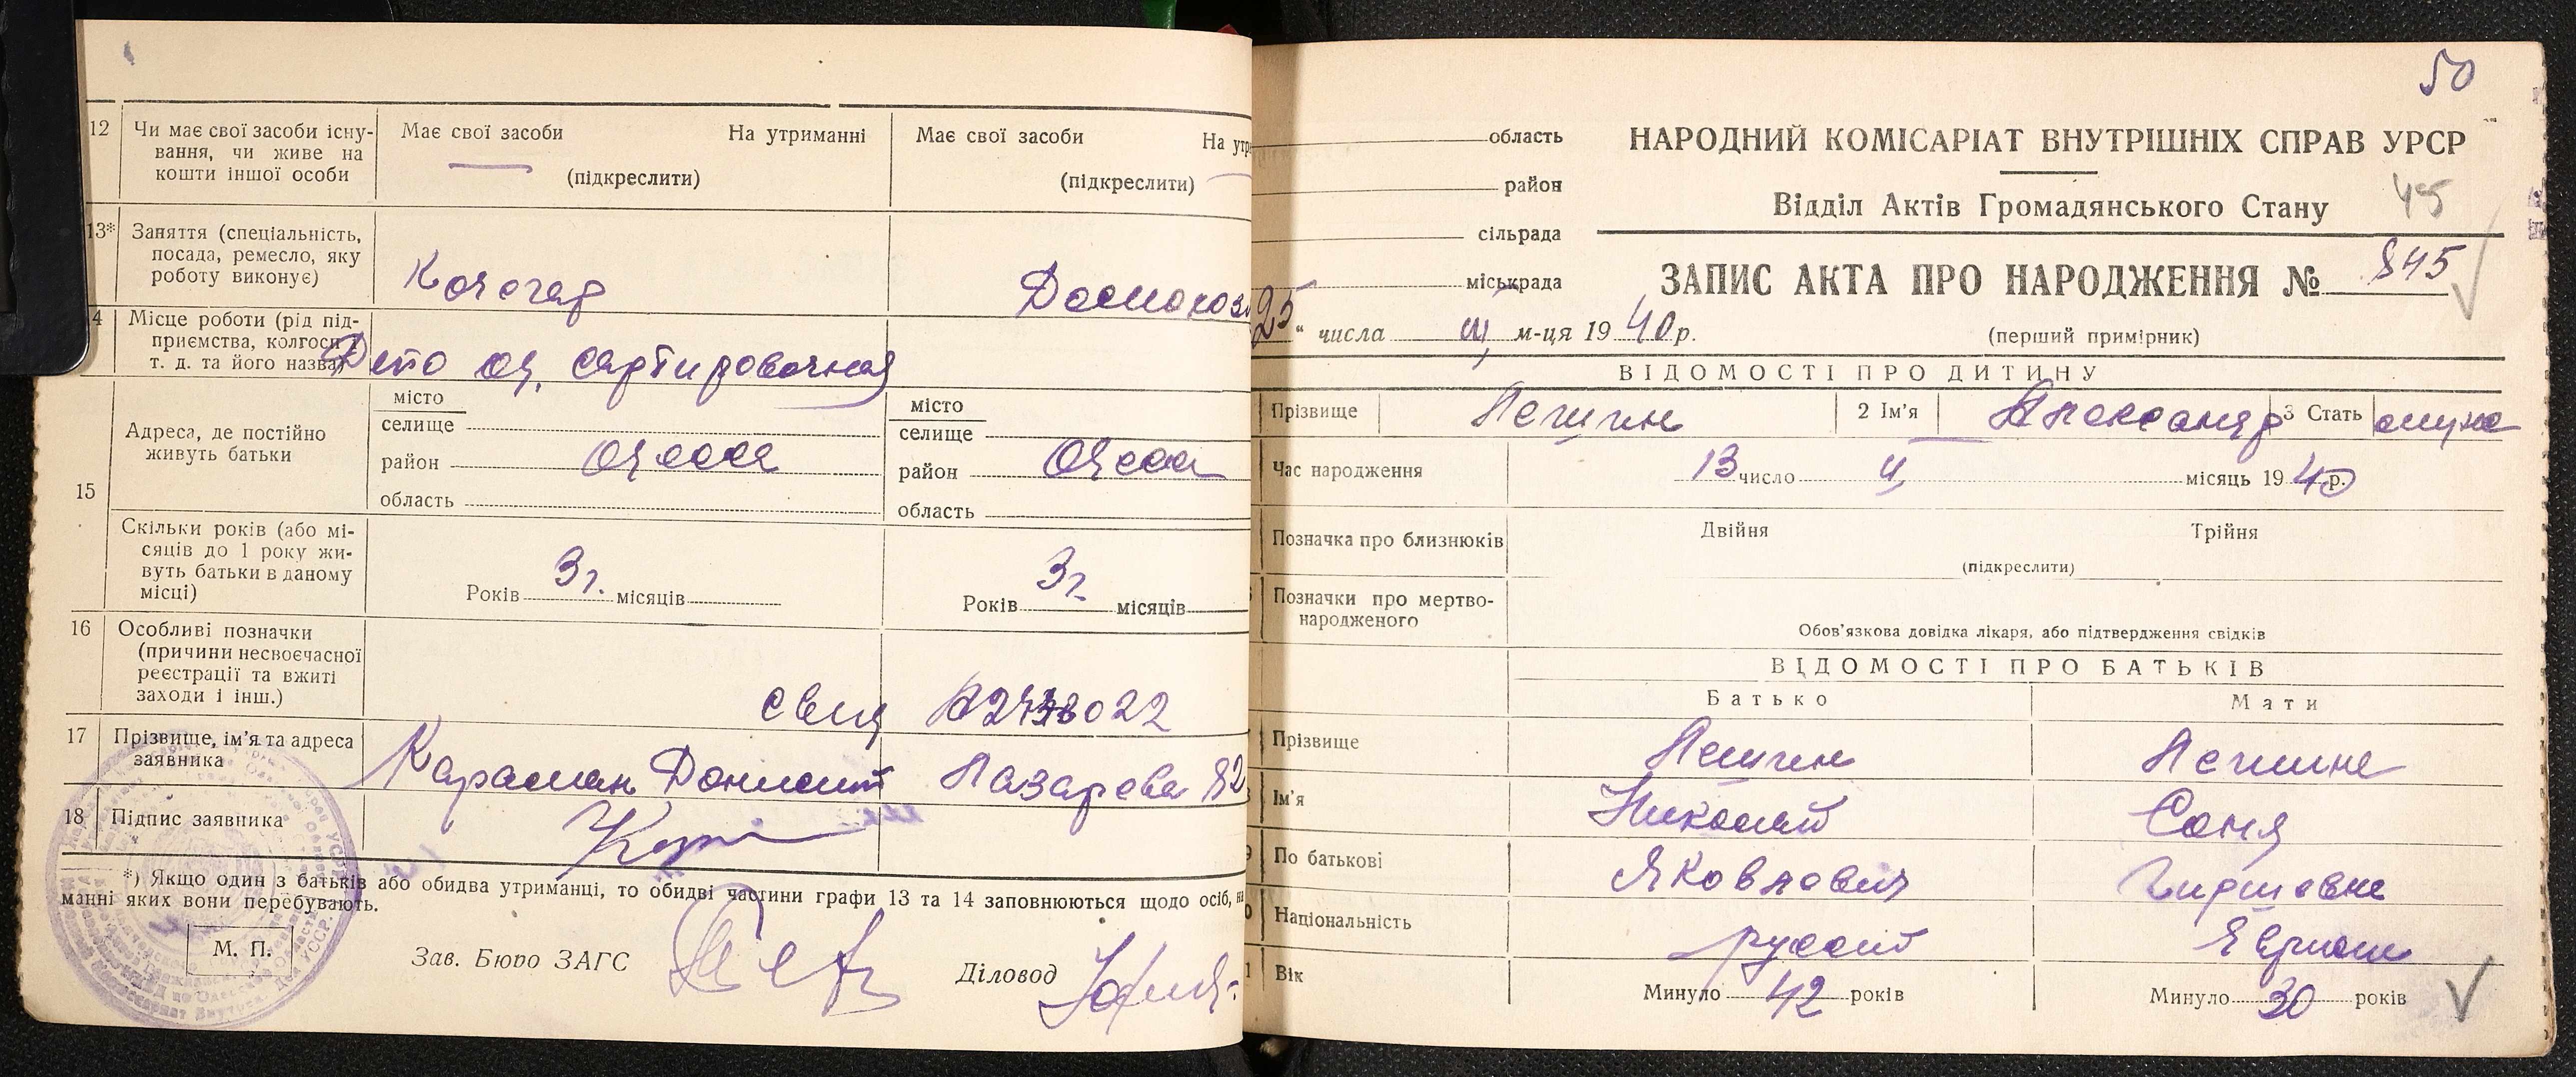 12 Чи має свої засоби існу-
вання, чи живе на
кошти іншої особи
Має свої засоби На утриманні
(підкреслити)
Має свої засоби На утр
(підкреслити)
13* Заняття (спеціальність,
посада, ремесло, яку
роботу виконує)
Кочегар
Домохоз
4 Місце роботи (рід під-
приємства, колгосп і
т. д. та його назва)
Депо од. сартировочная
15
Адреса, де постійно
живуть батьки
місто
селище
район Одесса
область
місто
селище
район Одесса
область
Скільки років (або мі-
сяців до 1 року жи-
вуть батьки в даному
місці)
Років 3 г. місяців
Років 3 г. місяців
16 Особливі позначки
(причини несвоєчасної
реєстрації та вжиті
заходи і інш.)
17 Прізвище, ім'я та адреса
заявника
Караман Лазарева 82
18 Підпис заявника
*) Якщо один з батьків або обидва утриманці, то обидві частини графи 13 та 14 заповнюються щодо осіб, на
манні яких вони перебувають.
М. П.
Зав. Бюро ЗАГС
Діловод
50
область
район
сільрада
міськрада
НАРОДНИЙ КОМІСАРІАТ ВНУТРІШНІХ СПРАВ УРСР
Відділ Актів Громадянського Стану
45
ЗАПИС АКТА ПРО НАРОДЖЕННЯ № 845
25 " числа III м-ця 1940 р.
(перший примірник)
ВІДОМОСТІ ПРО ДИТИНУ
Прізвище
2 Ім'я Александр
3 Стать муж
Час народження 13 число II місяць 1940 р.
Позначка про близнюків
Двійня Трійня
(підкреслити)
Позначки про мертво-
народженого
Обов'язкова довідка лікаря, або підтвердження свідків
ВІДОМОСТІ ПРО БАТЬКІВ
Батько Мати
Прізвище
Ім'я Николай Соня
По батькові Яковлевич Гиршевна
Національність русский Еврейка
Вік
Минуло 42 років
Минуло 30 років